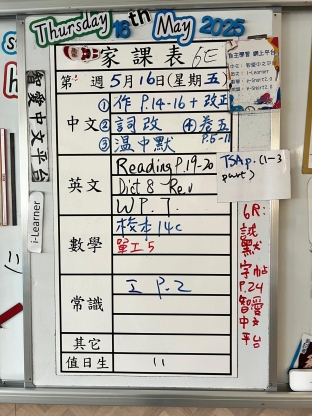 Thursday 16th May 2025
家課表 6E
自主學習 網上平台
智愛中文平台
i-Learner
第 週 5月16日(星期五)
中文
① 作 P.14-16 + 改正
② 詞改 ④ 卷五 P.5-11
③ 溫中默
英文
Reading P.19-20
Dict 8 Rev
WP 7.
TSA p.(1-3 part)
數學
校本14c
單工5
常識
工 P.2
其它
值日生
11
6R:
試
默
字帖
P.24
智愛
中文
平台